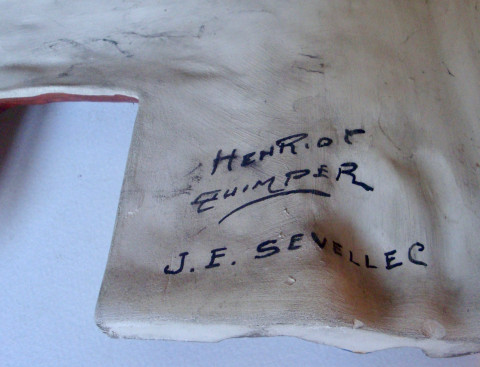 HENRIOT
QUIMPER
J.E. SEVELLEC